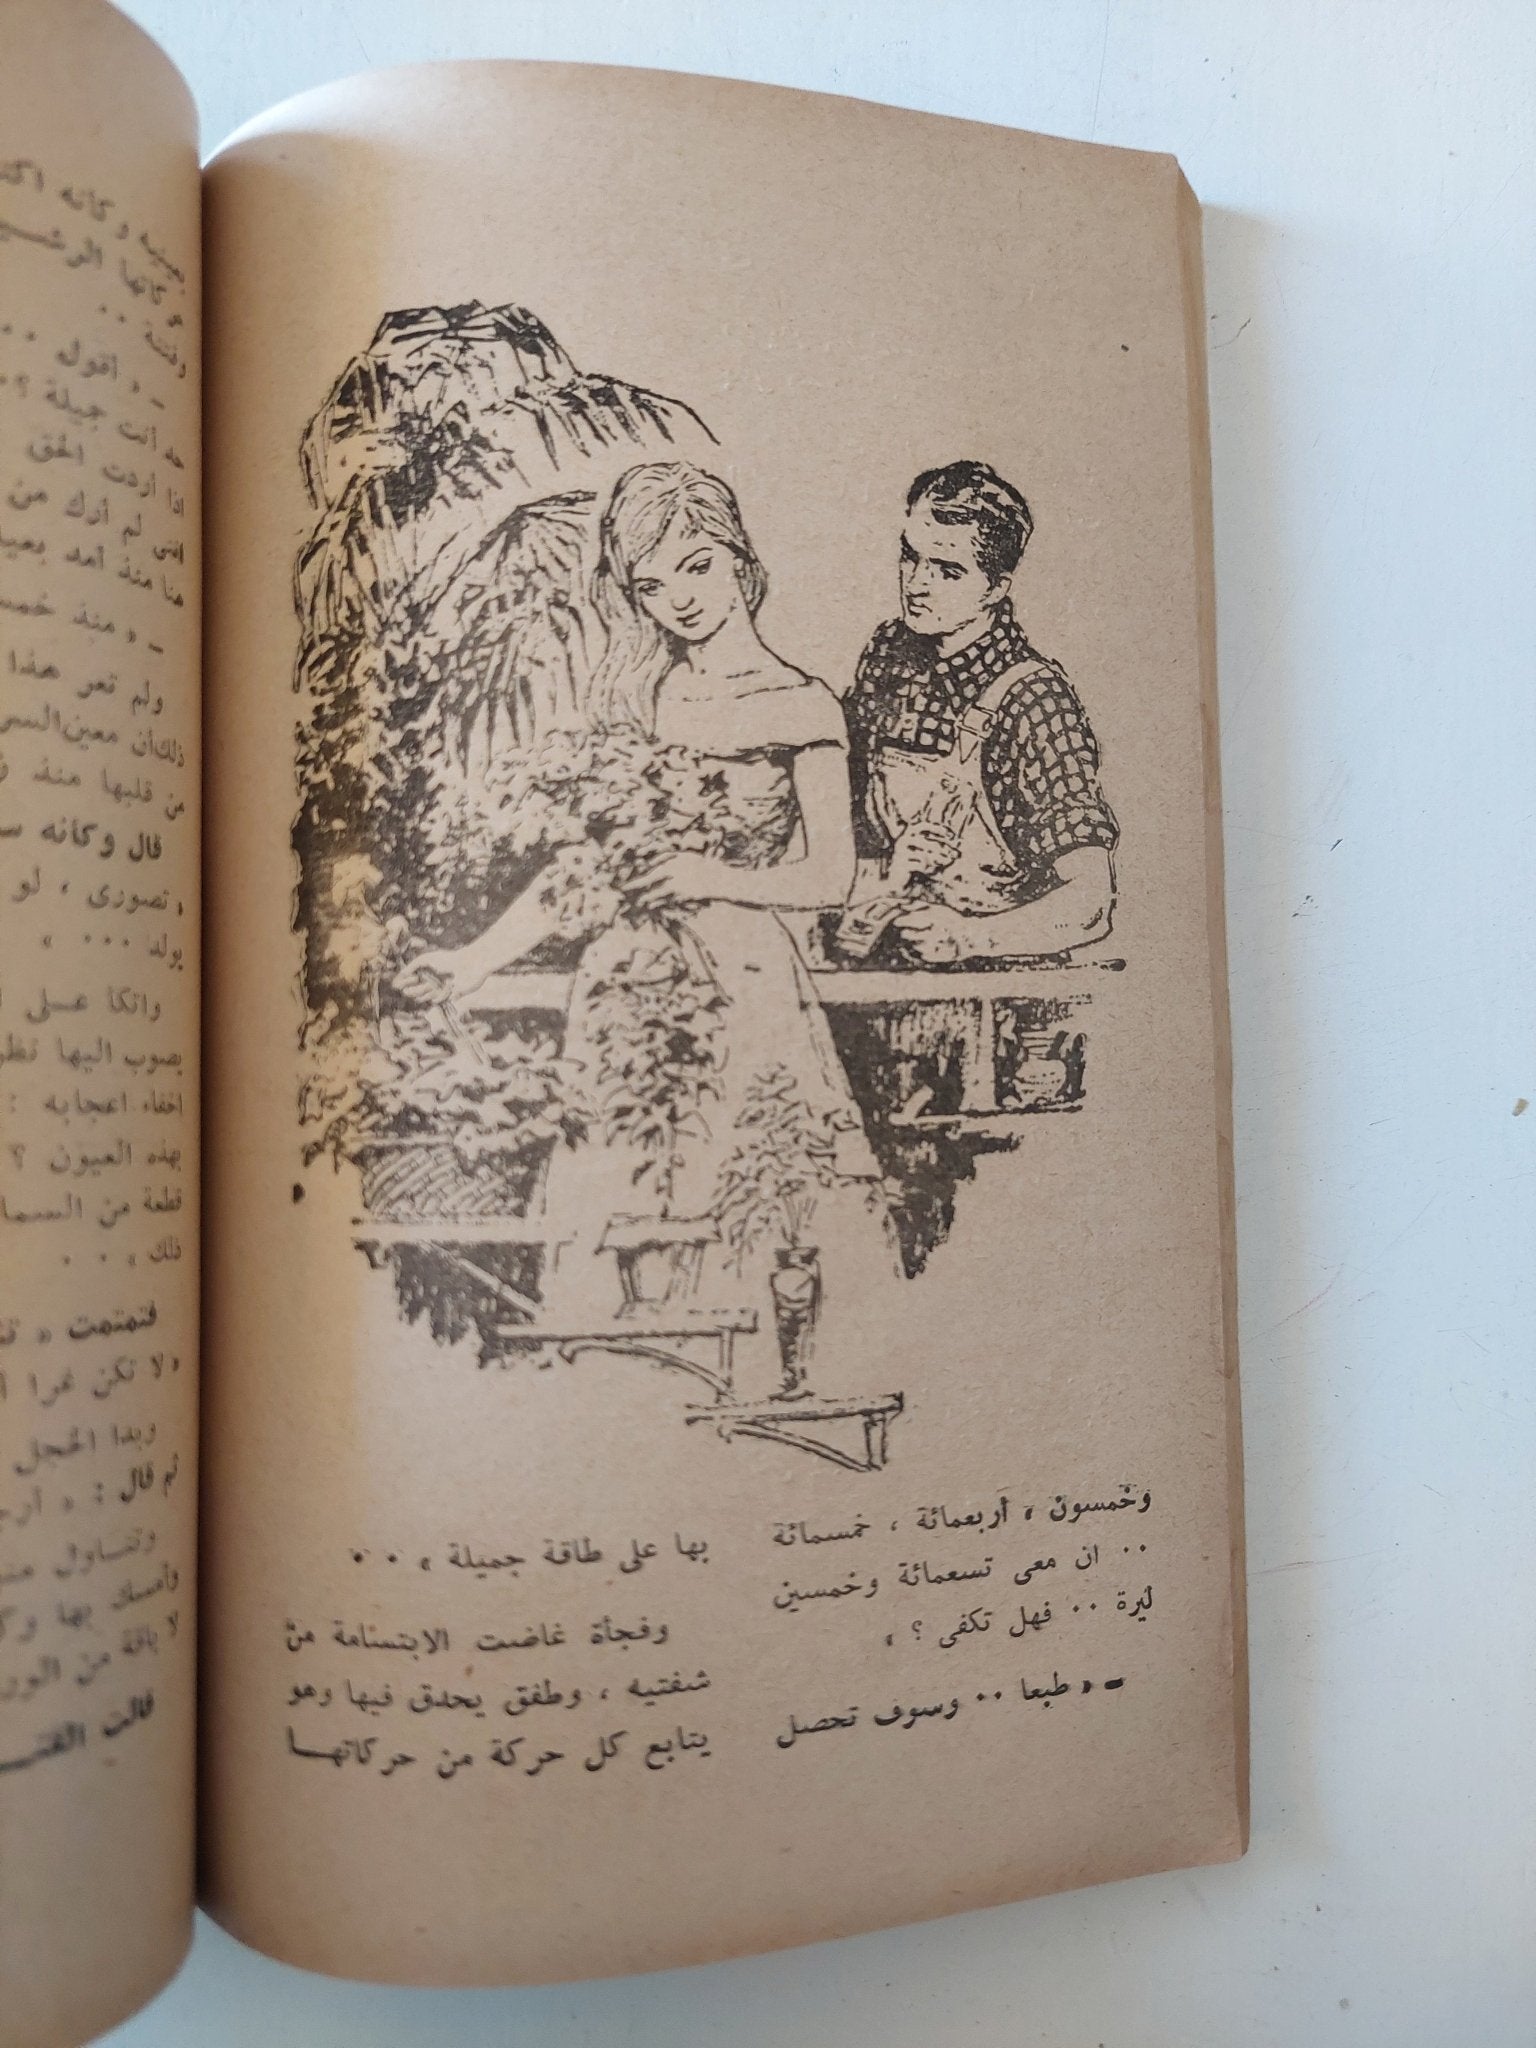 وخمسون ، أربعمائة ، خمسمائة
٠٠ ان معى تسعمائة وخمسين
ليرة ٠٠ فهل تكفى ؟ »
ـ « طبعا ٠٠ وسوف تحصل
بها على طاقة جميلة » ٠٠
وفجأة غاضت الابتسامة من
شفتيه ، وطفق يحدق فيها وهو
يتابع كل حركة من حركاتهـا
جبينه وكأنه
كأنها
ـ « أقول ٠٠
أنت جميلة ؟
اذا أردت الحق
لم أرك من
هنا منذ أمد
ـ « منذ
ولم تعر هذا
ذلك أن معين
من قلبها منذ
قال وكأنه
« تصورى ، لو
يولد ٠٠٠ »
واتكأ عـلى
يصوب اليها
اخفاء اعجابه :
بهذه العيون ؟
قطعة من
ذلك » ٠٠
فتمتمت «
« لا تكن غرا
وبدا الخجل
ثم قال : «
وتنـاول
وأمسك بها
باقة من
قالت